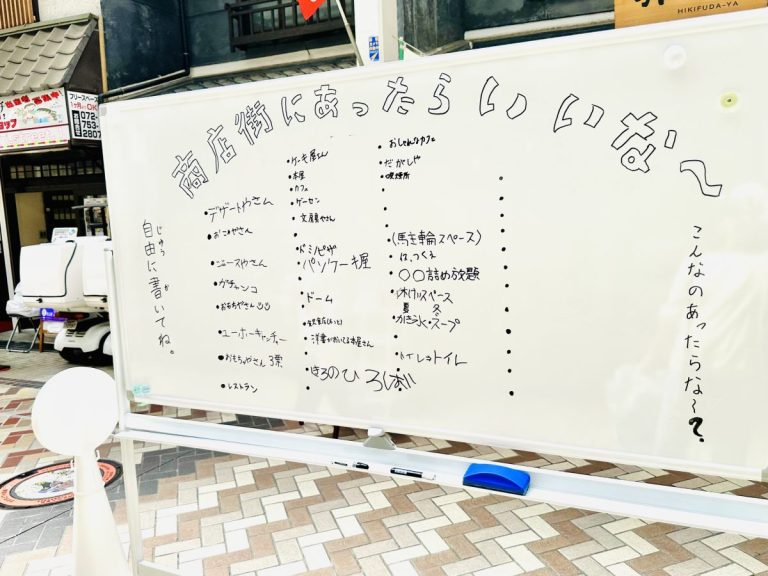 HIKIFUDA-YA
フリースペース
072-
763-
2807
商店街にあったらいいな～
じゆう
自由に書いてね。
か
・デザートやさん
・おこめやさん
・ジュースやさん
・ガチャンコ
・おもちゃやさん
・ユーホーキャッチャー
・おもちゃやさん 3票
・レストラン
・ケーキ屋さん
・本屋
・カフェ
・ゲーセン
・文房具やさん
・ドミノピザ
・パンケーキ屋
・ドーム
・飲食店(もっと)
・洋書がおいてる本屋さん
・きろのひろば
・おしゃれなカフェ
・だがしや
・喫煙所
・(駐輪スペース)
・は、つくえ
・〇〇詰め放題
・休けいスペース
夏 冬
・かき氷・スープ
・トイレ
こんなのあったらな～?